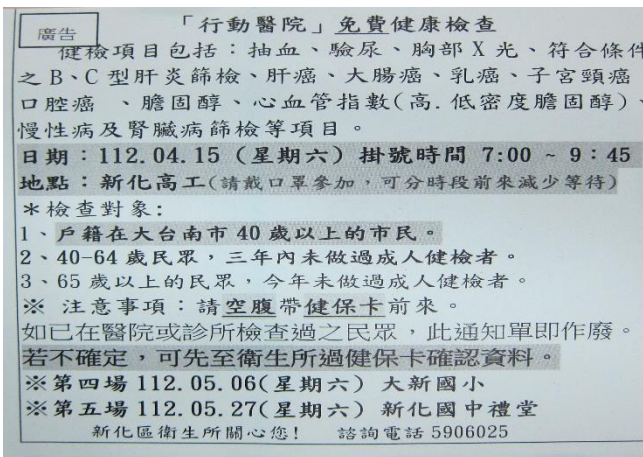 廣告
「行動醫院」免費健康檢查
健檢項目包括：抽血、驗尿、胸部 X 光、符合條件
之 B、C 型肝炎篩檢、肝癌、大腸癌、乳癌、子宮頸癌
口腔癌 、膽固醇、心血管指數(高.低密度膽固醇)
慢性病及腎臟病篩檢等項目。
日期：112.04.15 (星期六) 掛號時間 7:00 ~ 9：45
地點：新化高工(請戴口罩參加，可分時段前來減少等待)
＊檢查對象:
1、戶籍在大台南市 40 歲以上的市民。
2、40-64 歲民眾，三年內未做過成人健檢者。
3、65 歲以上的民眾，今年未做過成人健檢者。
※ 注意事項：請空腹帶健保卡前來。
如已在醫院或診所檢查過之民眾，此通知單即作廢。
若不確定，可先至衛生所過健保卡確認資料。
※第四場 112.05.06(星期六) 大新國小
※第五場 112.05.27(星期六) 新化國中禮堂
新化區衛生所關心您! 諮詢電話 5906025